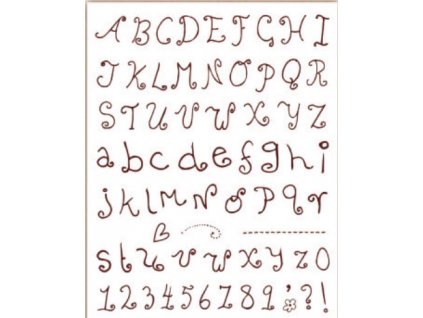 A B C D E F G H I
J K L M N O P Q R
S T U V W X Y Z
a b c d e f g h i
j k l m n o p q r
s t u v w x y z 0
1 2 3 4 5 6 7 8 9 ' ? !